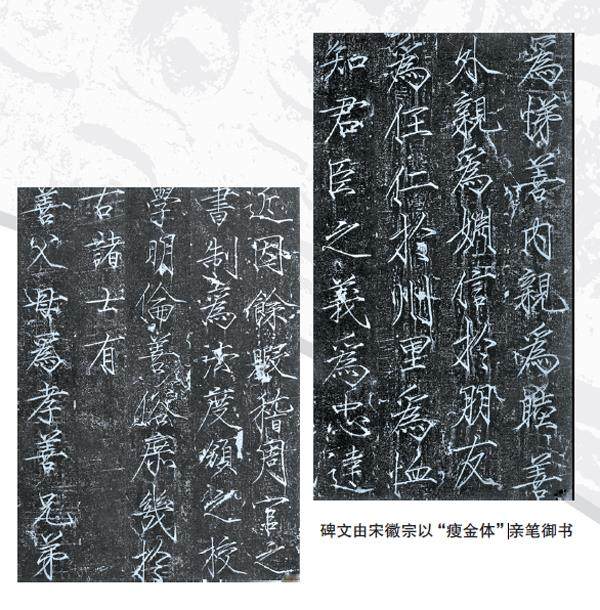 近因餘暇稽周官之
書制為法度頒之校
學明倫善俗庶幾於
古諸士有
善父母為孝善兄弟
為悌善內親為睦善
外親為婣信於朋友
為任仁於州里為恤
知君臣之義為忠達
碑文由宋徽宗以“瘦金体”亲笔御书